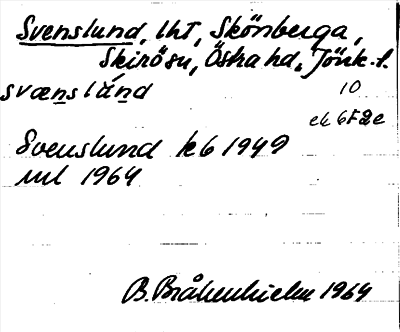 Svenslund, lht, Skönberga,
Skirö sn, Östra hd, Jönk. l.
svænslánd 10
ek 6F2e
Svenslund k6 1949
uul 1964
B. Bråkenhielm 1964